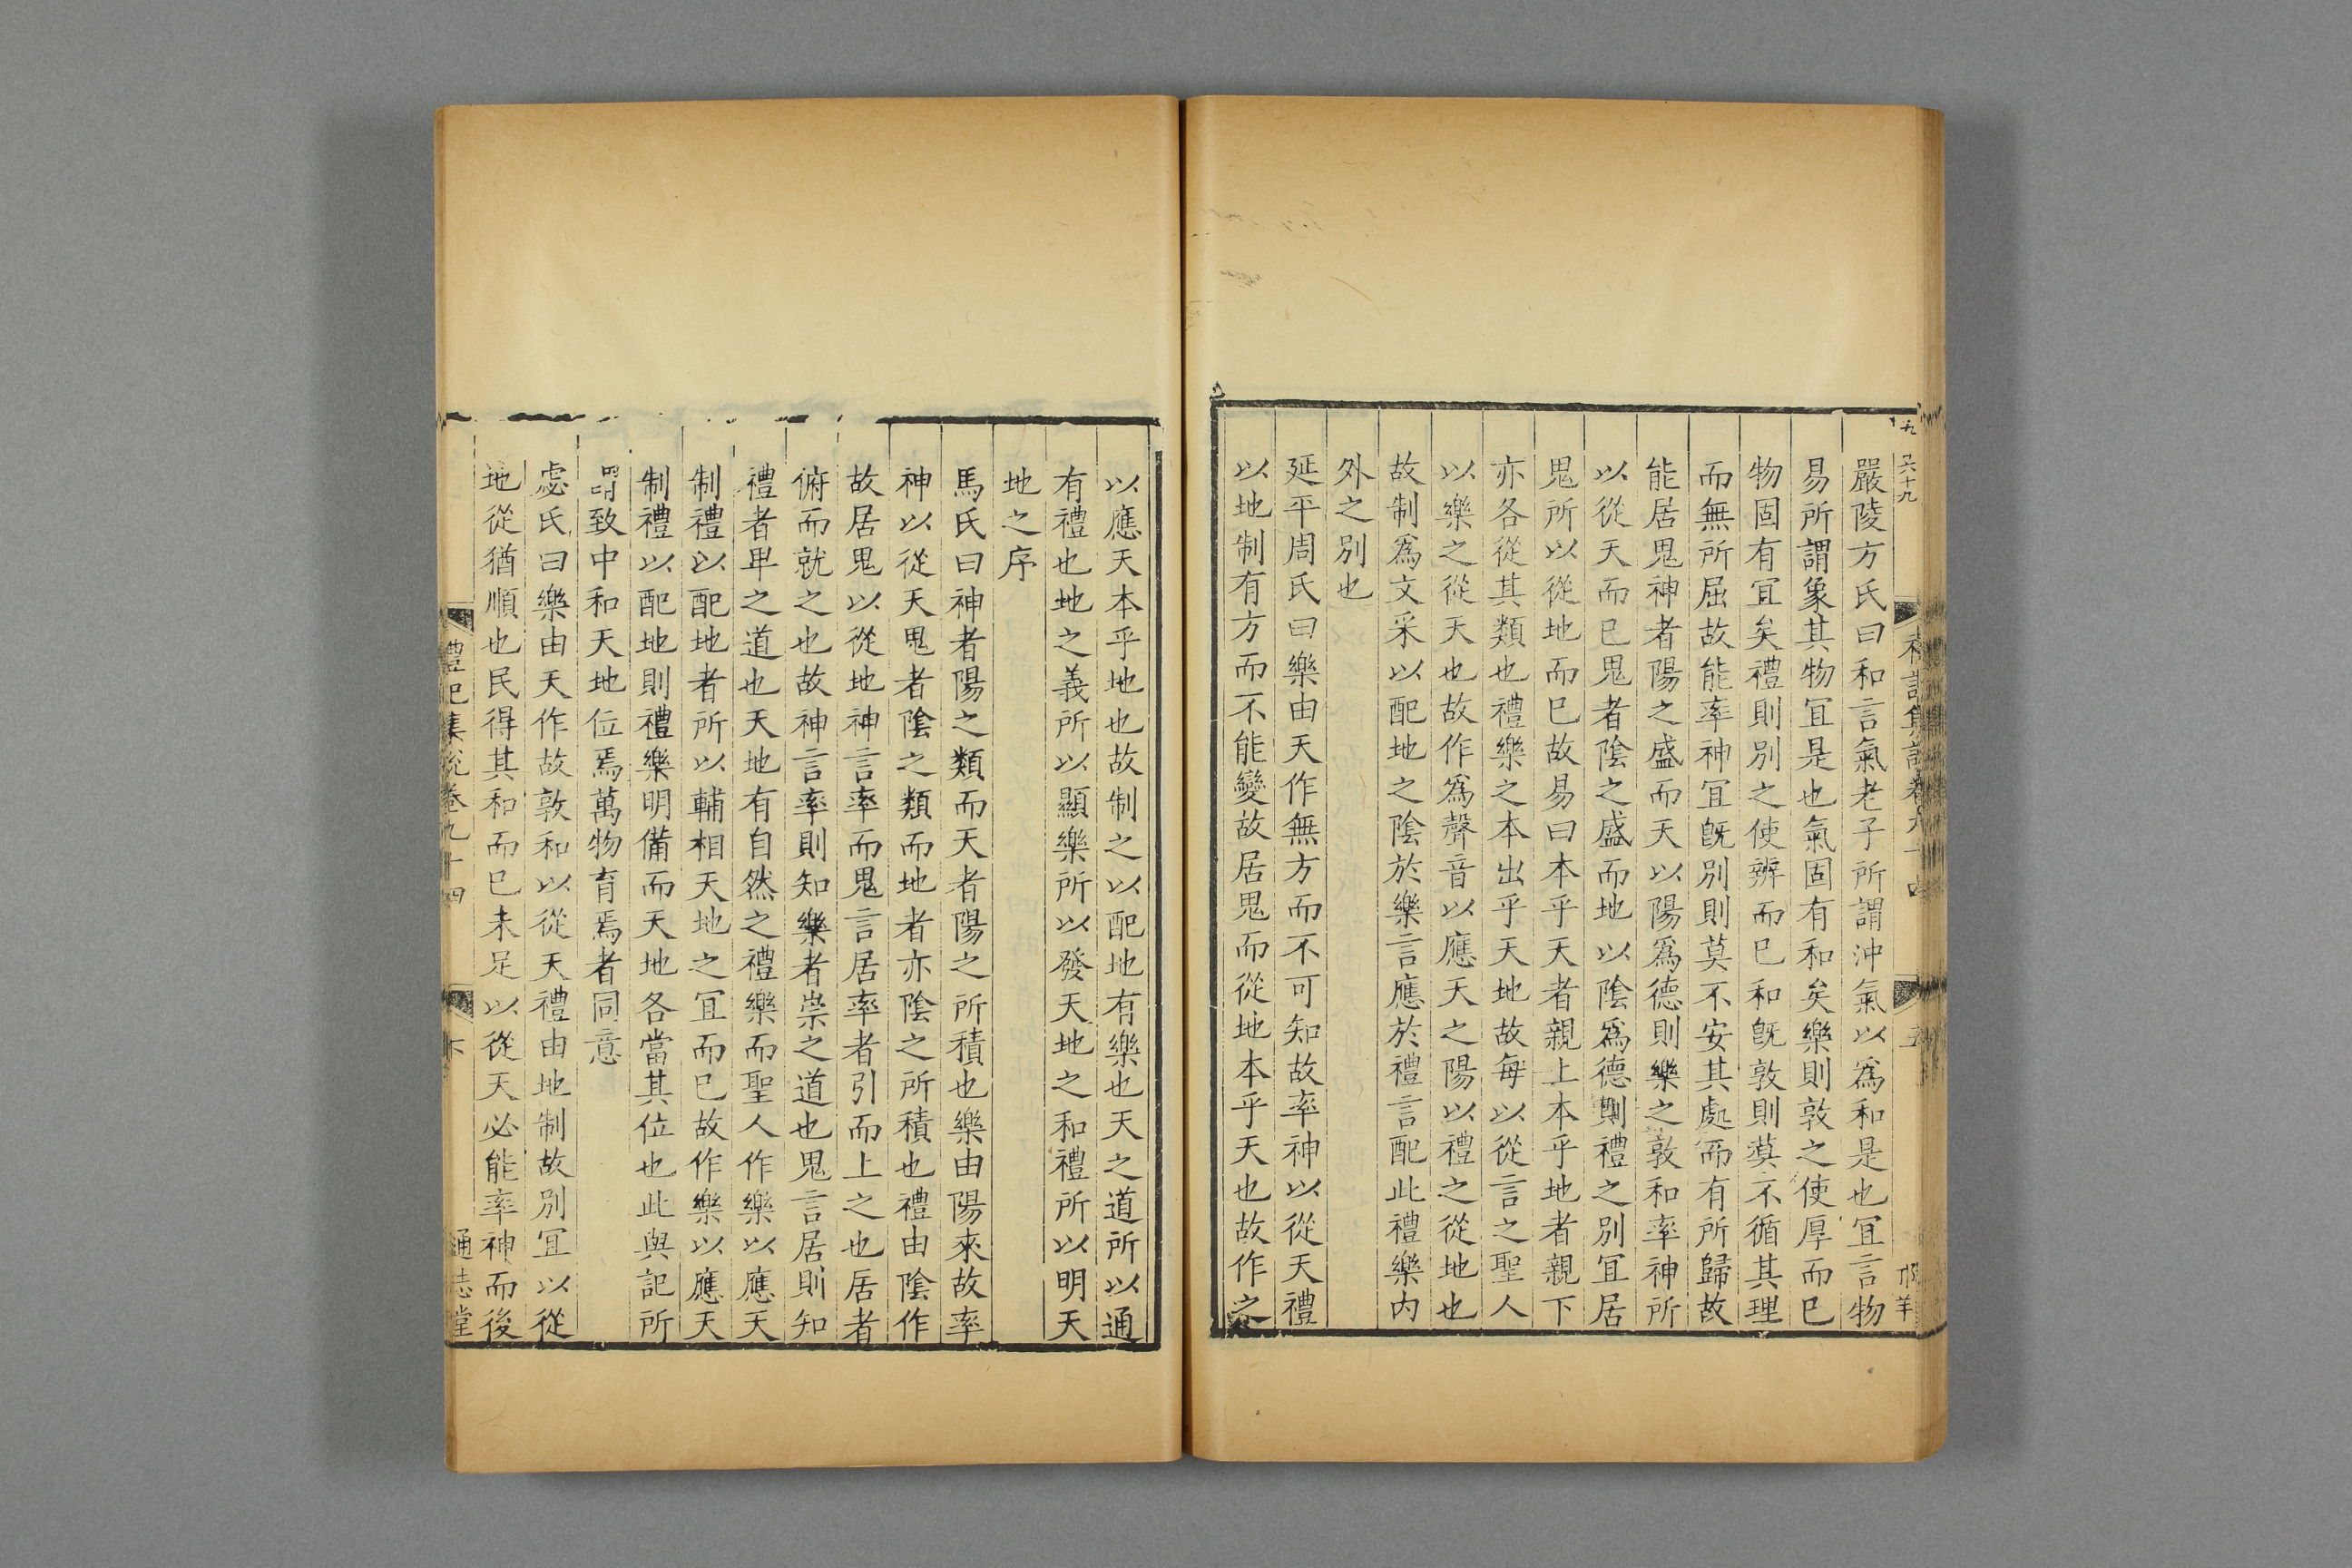 嚴陵方氏曰和言氣老子所謂沖氣以爲和是也宜言物
易所謂象其物宜是也氣固有和矣樂則敦之使厚而已
物固有宜矣禮則別之使辨而已和旣敦則莫不循其理
而無所屈故能率神宜旣別則莫不安其處而有所歸故
能居鬼神者陽之盛而天以陽爲德則樂之敦和率神所
以從天而已鬼者陰之盛而地以陰爲德則禮之別宜居
鬼所以從地而已故易曰本乎天者親上本乎地者親下
亦各從其類也禮樂之本出乎天地故每以從言之聖人
以樂之從天也故作爲聲音以應天之陽以禮之從地也
故制爲文采以配地之陰於樂言應於禮言配此禮樂内
外之別也
延平周氏曰樂由天作無方而不可知故率神以從天禮
以地制有方而不能變故居鬼而從地本乎天也故作之
以應天本乎地也故制之以配地有樂也天之道所以通
有禮也地之義所以顯樂所以發天地之和禮所以明天
地之序
馬氏曰神者陽之類而天者陽之所積也樂由陽來故率
神以從天鬼者陰之類而地者亦陰之所積也禮由陰作
故居鬼以從地神言率而鬼言居率者引而上之也居者
俯而就之也故神言率則知樂者崇之道也鬼言居則知
禮者卑之道也天地有自然之禮樂而聖人作樂以應天
制禮以配地者所以輔相天地之宜而已故作樂以應天
制禮以配地則禮樂明備而天地各當其位也此與記所
謂致中和天地位焉萬物育焉者同意
慮氏曰樂由天作故敦和以從天禮由地制故別宜以從
地從猶順也民得其和而已未足以從天必能率神而後
禮記集說卷九十四
通志堂